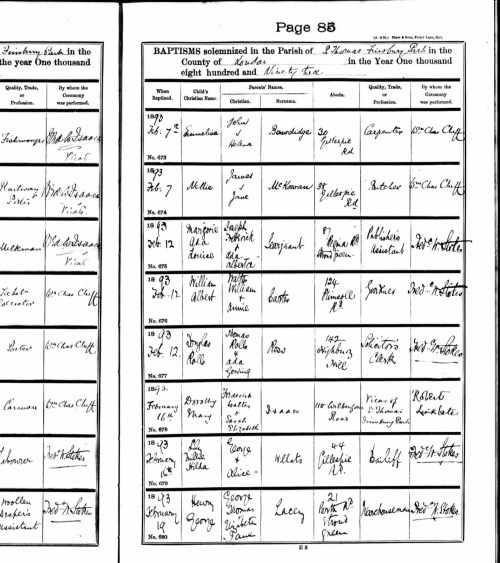 Page 85
Finsbury Park in the
the year One thousand
Quality, Trade,
or
Profession.
By whom the
Ceremony
was performed.
Fishmonger
Vicar
Railway
Porter
Vicar
Milkman
Vicar
Ticket
Collector
Wm Chas Cluff
Porter
Wm Chas Cluff
Carman
Wm Chas Cluff
Labourer
Fred W. Stokes
Woollen
Drapers
Assistant
Fred W. Stokes
BAPTISMS solemnized in the Parish of S. Thomas Finsbury Park in the
County of London in the Year One thousand
eight hundred and Ninety
When
Baptized.
Child's
Christian Name.
Parents' Names.
Christian.
Surname.
Abode.
Quality, Trade,
or
Profession.
By whom the
Ceremony
was performed.
1893
Feb. 7th
No. 673
John
&
Helena
30
Gillespie
Rd
Carpenter
Wm Chas Cluff
1893
Feb. 7
No. 674
Nellie
James
&
Jane
McKowan
38
Gillespie
Rd
Butcher
Wm Chas Cluff
1893
Feb. 12
No. 675
Marjorie
Ada
Louise
Joseph
Frederick
&
Ada
Alberta
Seargeant
87
Publishers
Assistant
Fred W. Stokes
1893
Feb. 12
No. 676
William
Albert
William
&
Annie
Carter
124
Plimsoll
Rd
Gardener
Fred W. Stokes
1893
Feb. 12.
No. 677
Douglas
Rolls
Thomas
Rolls
&
Ada
Ross
142
Highbury
Hill
Solicitors
Clerk
Fred W. Stokes
1893
February
16th
No. 678
Dorothy
Mary
Frederick
&
Sarah
Elizabeth
Isaacs
Wilberforce
Road
Vicar of
S. Thomas
Finsbury Park
Robert
Linklater
1893
February
16th
No. 679
Hilda
George
&
Alice
44
Gillespie
Rd.
Bailiff
Fred W. Stokes
1893
February
19
No. 680
Henry
George
George
Thomas
Elizabeth
Lacey
21
North Rd
Stroud
Green
Warehouseman
Fred W. Stokes
E 3